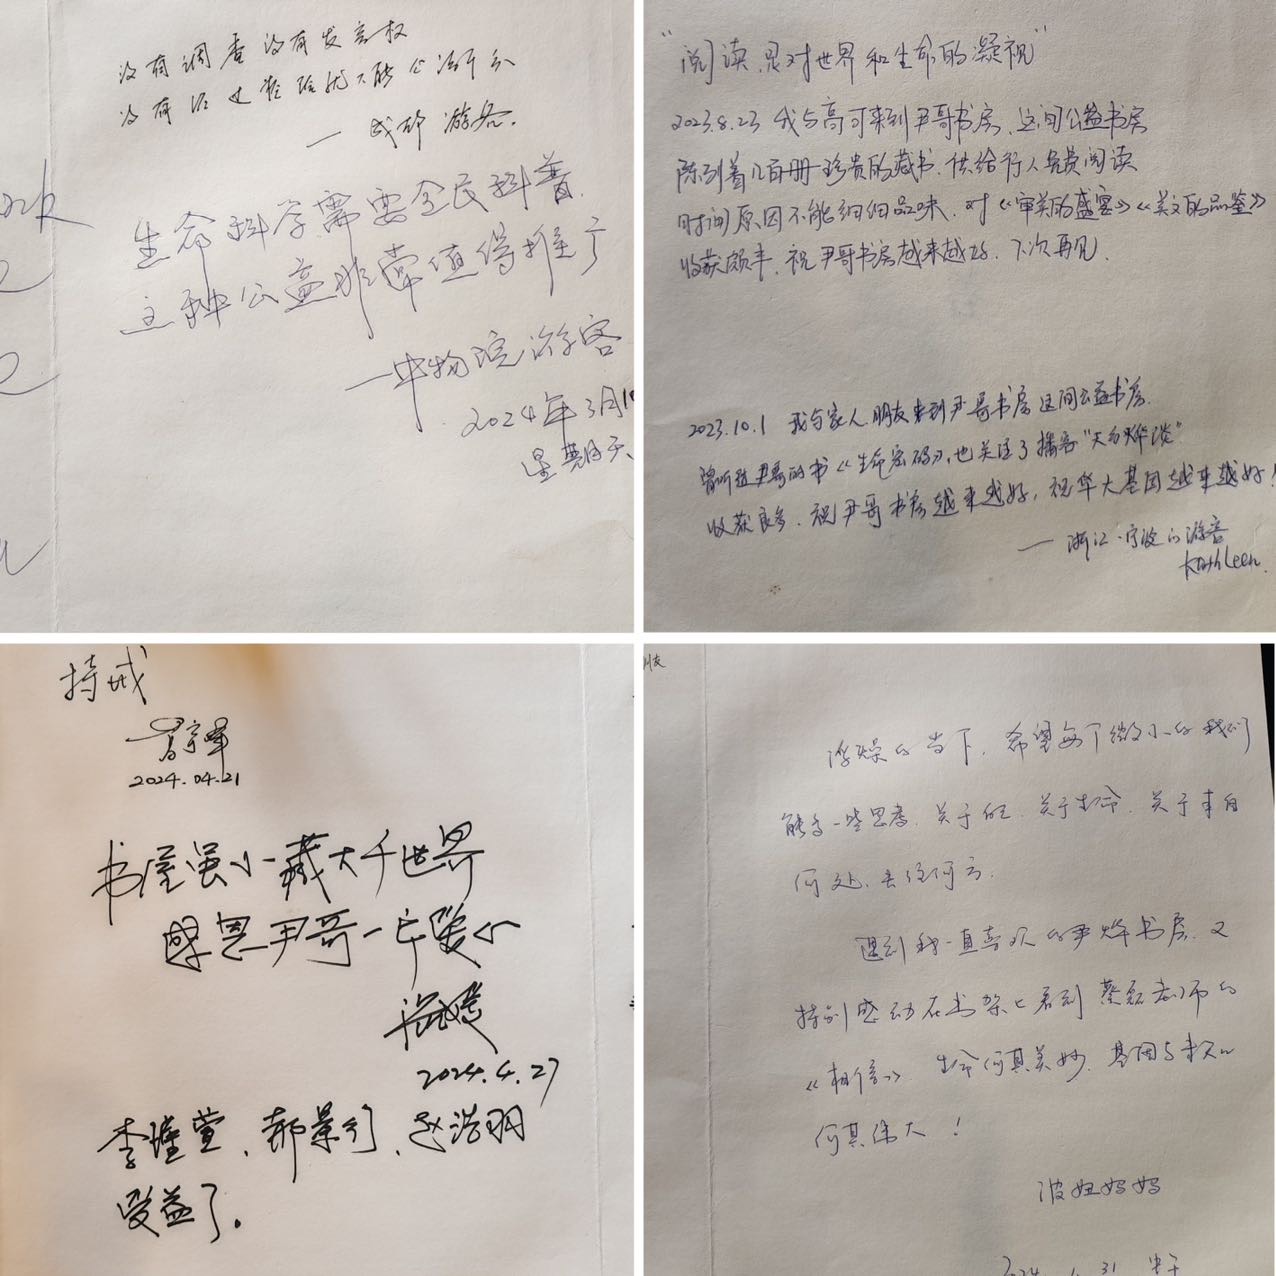 没有调查没有发言权
没有
一成都游客.
生命科学需要全民科普.
这种公益非常值得推广
一中物院游客
2024年3月10
星期天
"阅读是对世界和生命的凝视"
2023.8.23 我与高可来到尹哥书房,这间公益书房
陈列着几百册珍贵的藏书,供给行人免费阅读
时间原因不能细细品味,对《审美的盛宴》《美文的品鉴》
收获颇丰,祝尹哥书房越来越好,下次再见.
2023.10.1 我与家人.朋友来到尹哥书房这间公益书房.
曾听过尹哥的书《生命密码》,也关注了播客"天方烨谈"
收获良多,祝尹哥书房越来越好,祝华大基因越来越好!
一浙江·宁波的游客
Kathleen.
持戒
2024.04.21
书屋虽小藏大千世界
感恩尹哥一片
2024.4.27
李瑾萱、郝景行、赵浩明
受益了。
浮燥的当下,希望每个微小的我们
能多一些思考,关于 关于生命,关于来自
何处,去往何方.
遇到我一直喜欢的尹烨书房,又
特别感动在书架上看到蔡磊老师的
《相信》,生命何其美妙,基因与
何其伟大!
波妞妈妈